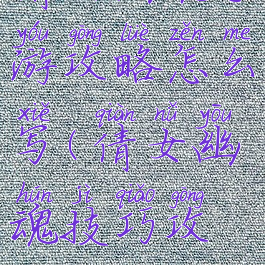 yóu gōng lüè zěn me
游攻略怎么
xiě qiàn nǚ yōu
写(倩女幽
hún jì qiǎo gōng
魂技巧攻